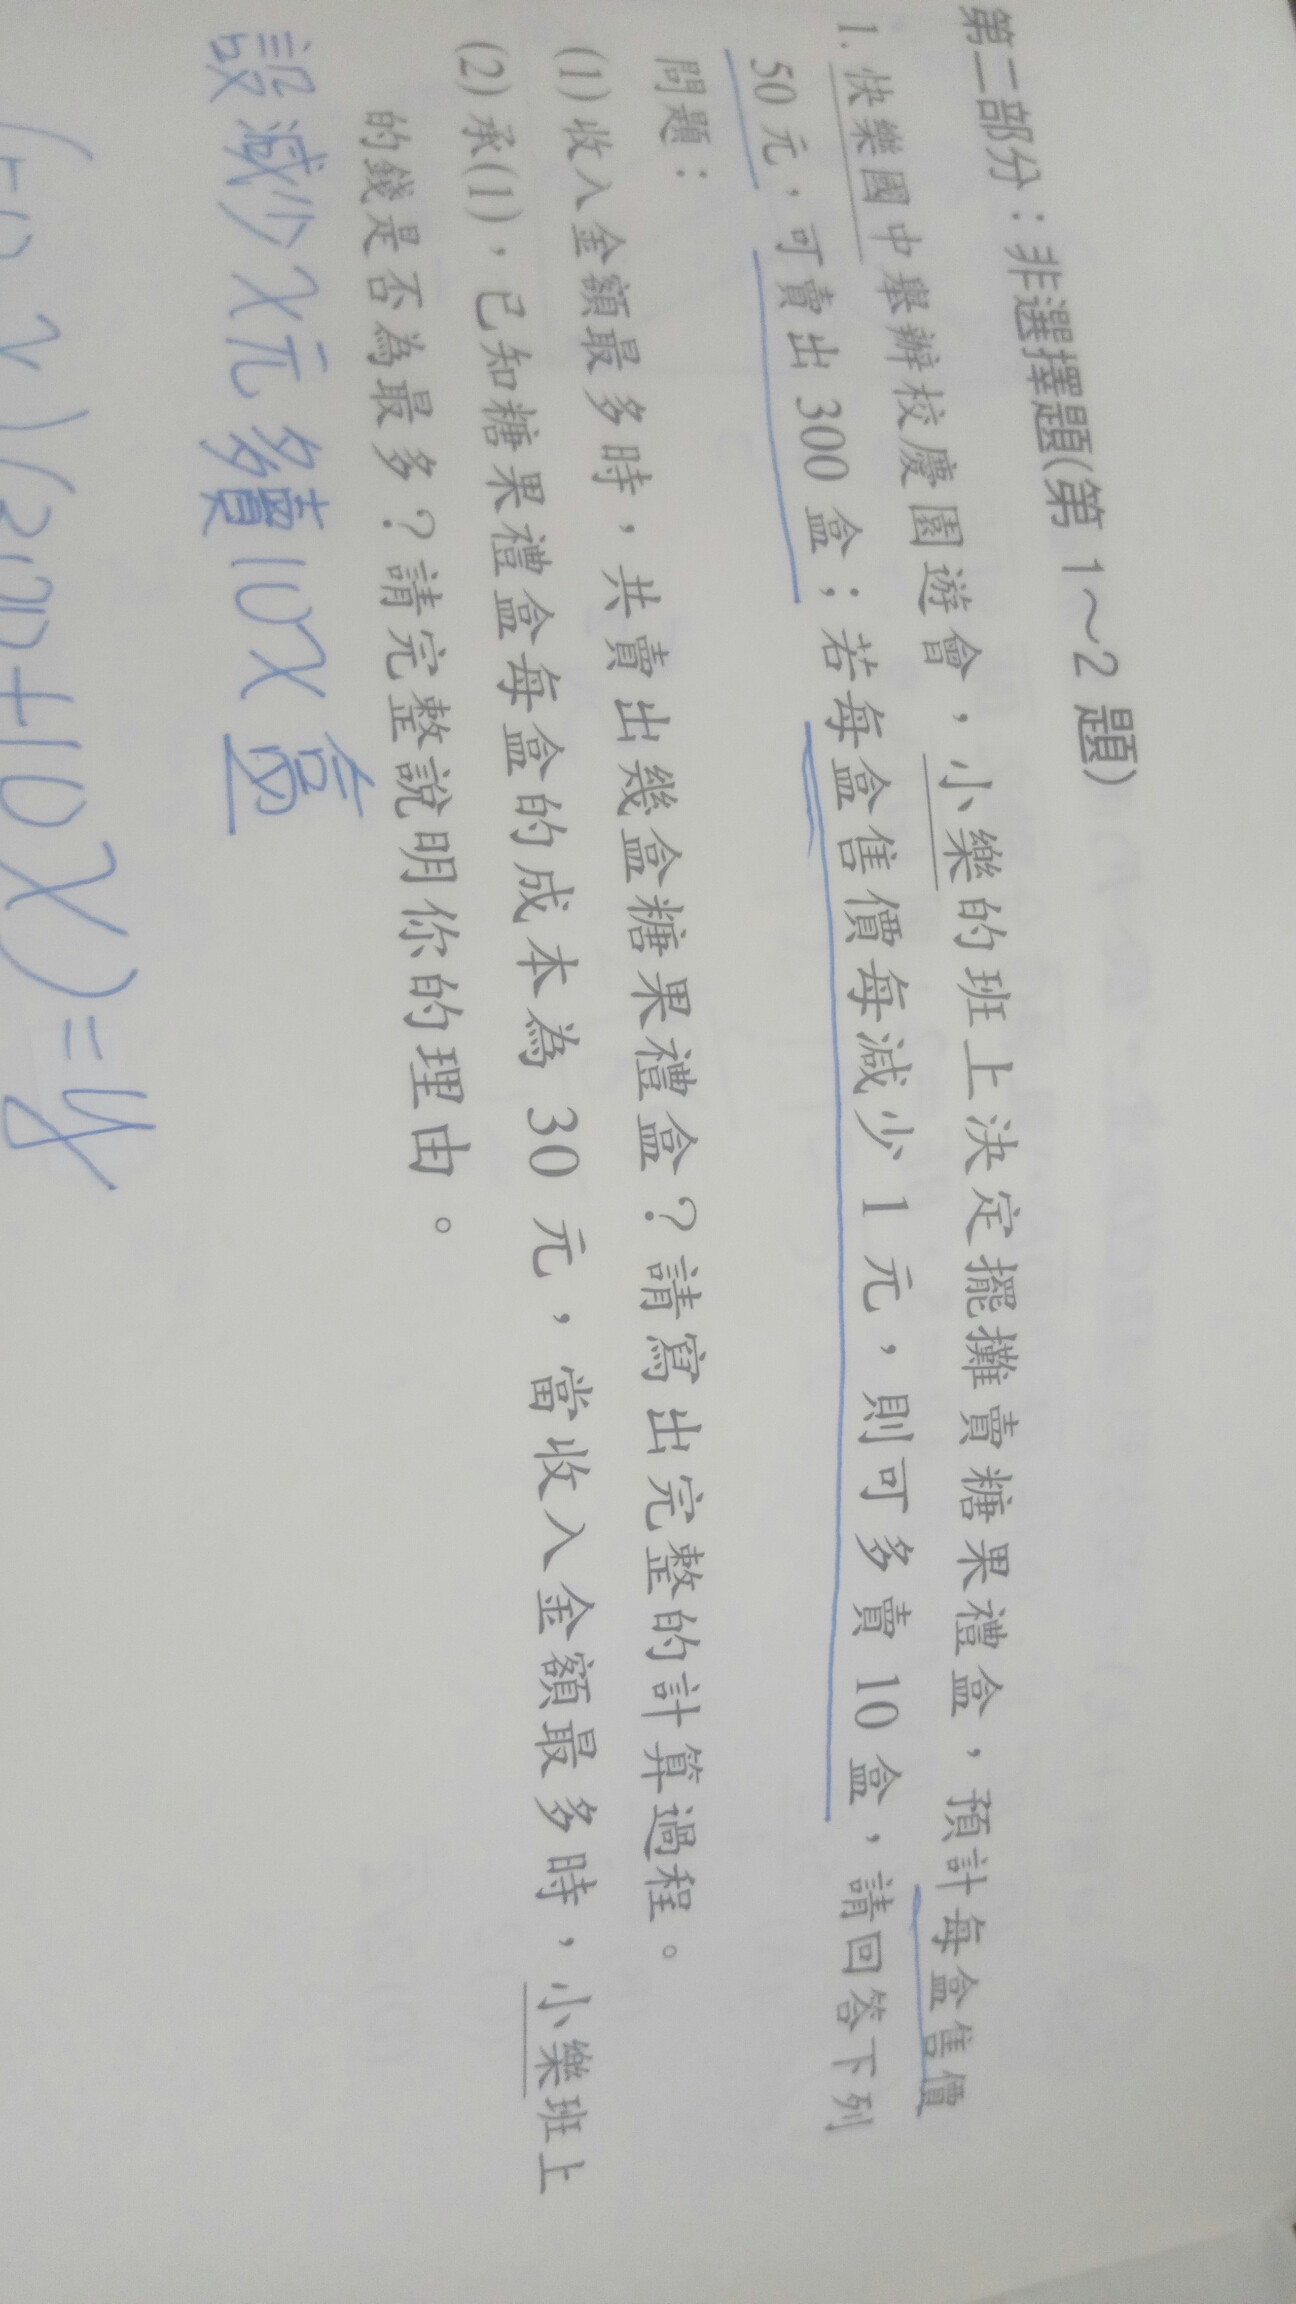 第二部分：非選擇題(第 1～2 題)
1. 快樂國中舉辦校慶園遊會，小樂的班上決定擺攤賣糖果禮盒，預計每盒售價
50 元，可賣出 300 盒；若每盒售價每減少 1 元，則可多賣 10 盒，請回答下列
問題：
(1) 收入金額最多時，共賣出幾盒糖果禮盒？請寫出完整的計算過程。
(2) 承(1)，已知糖果禮盒每盒的成本為 30 元，當收入金額最多時，小樂班上
的錢是否為最多？請完整說明你的理由。
設減少x元多賣10x盒
x)(300+10x)=y